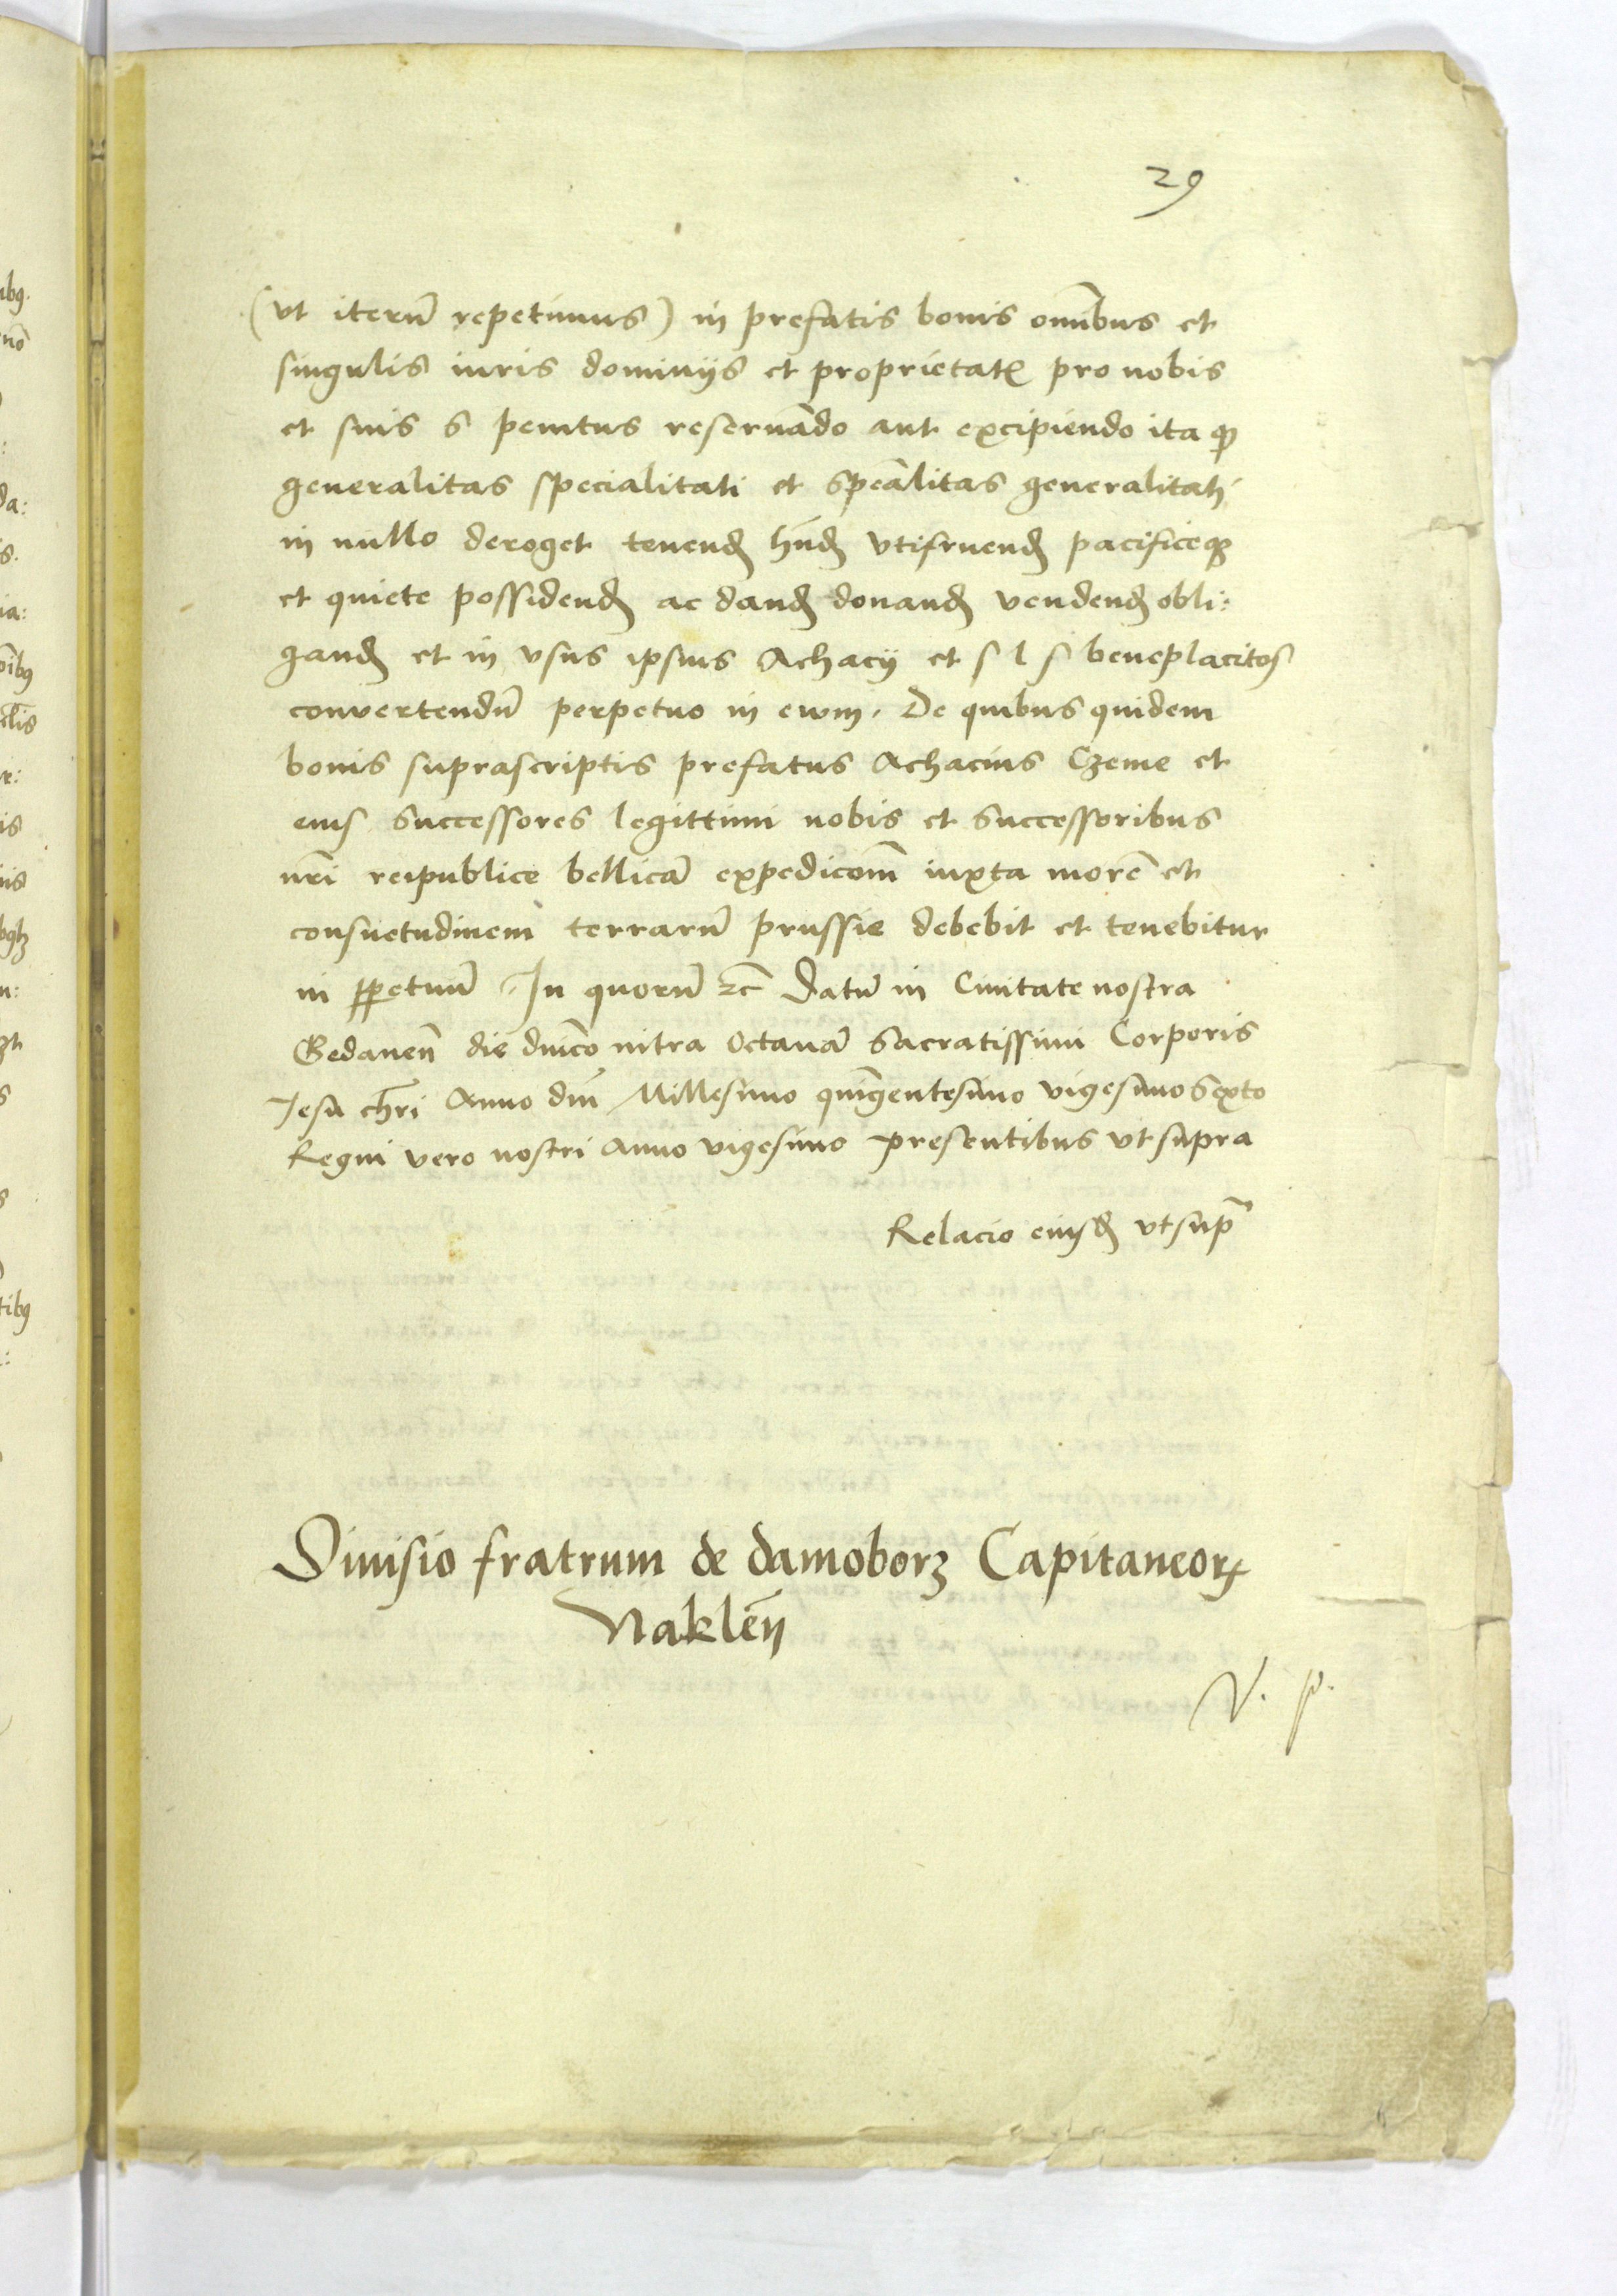 29
(vt iterū repetimus) in prefatis bonis omībus et
singulis iuris dominijs et proprietatꝭ pro nobis
et suis s penitus reseruādo aut excipiendo ita ꝙ
generalitas specialitati et speālitas generalitati
in nullo deroget tenendꝭ hn̄dꝭ vtifruendꝭ pacificeqꝫ
et quiete possidendꝭ ac dandꝭ donandꝭ vendendꝭ obli:
gandꝭ et in vsus ipsius Achacij et s l s beneplacitos
convertendū perpetuo in ewm. De quibus quidem
bonis suprascriptis prefatus Achacius Czeme et
eius successores legittimi nobis et successoribus
nr̄i reipublice bellicā expedicom̄ iuxta morē et
consuetudinem terrarū prussie debebit et tenebitur
in ꝑpetuū In quorū ꝛc̄ Datū in Ciuitate nostra
Gedanen̄ die dnīco intra Octauā Sacratissimi Corporis
Jesu chr̄i Anno dn̄i Millesimo quīgentesimo vigesimosexto
Regni vero nostri Anno vigesimo presentibus vt supra
Relacio eiusdꝭ vt sup̄
Diuisio fratrum de damoborz Capitaneorꝝ
Naklēn
V. p.